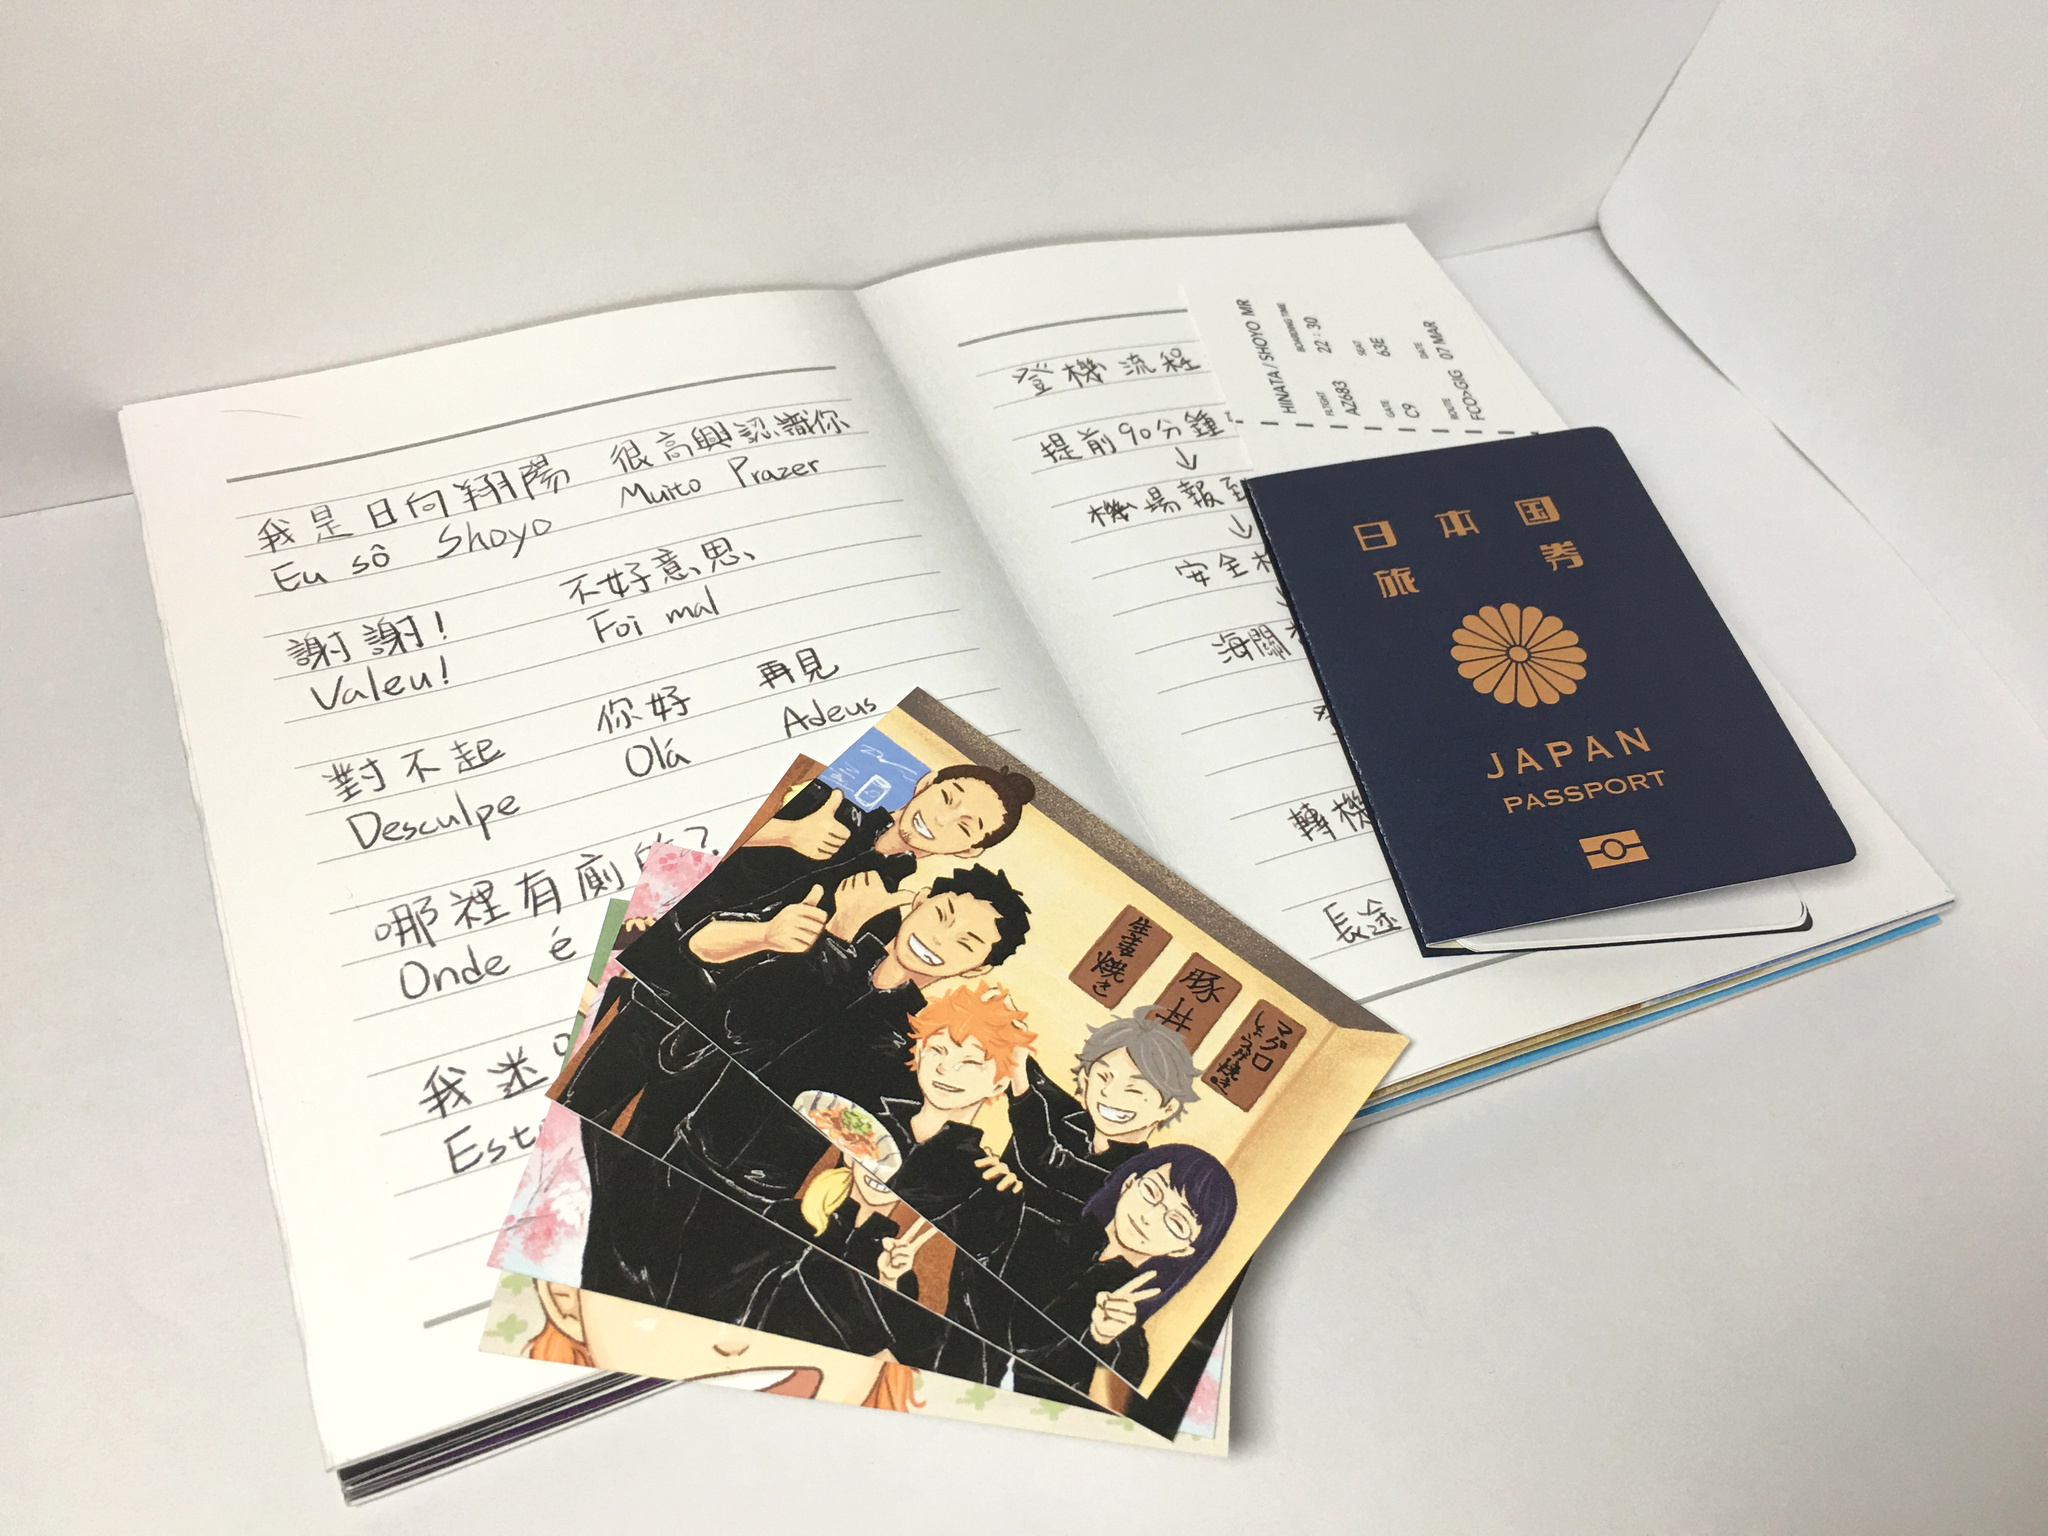 我是日向翔陽 很高興認識你
Eu sô Shoyo Muito Prazer
謝謝! 不好意思、
Valeu! Foi mal
對不起 你好 再見
Desculpe Olá Adeus
哪裡有廁?
Onde é
我迷
Est
登機流程
提前90分鐘
↓
機場報到
↓
安全
海關
轉機
長途
HINATA/SHOYO MR
FLIGHT BOARDING TIME
AZ683 22:30
GATE SEAT
C9 63E
ROUTE DATE
FCO>GIG 07 MAR
日本国
旅券
JAPAN
PASSPORT
生姜焼き
豚丼
マグロしょうが焼き